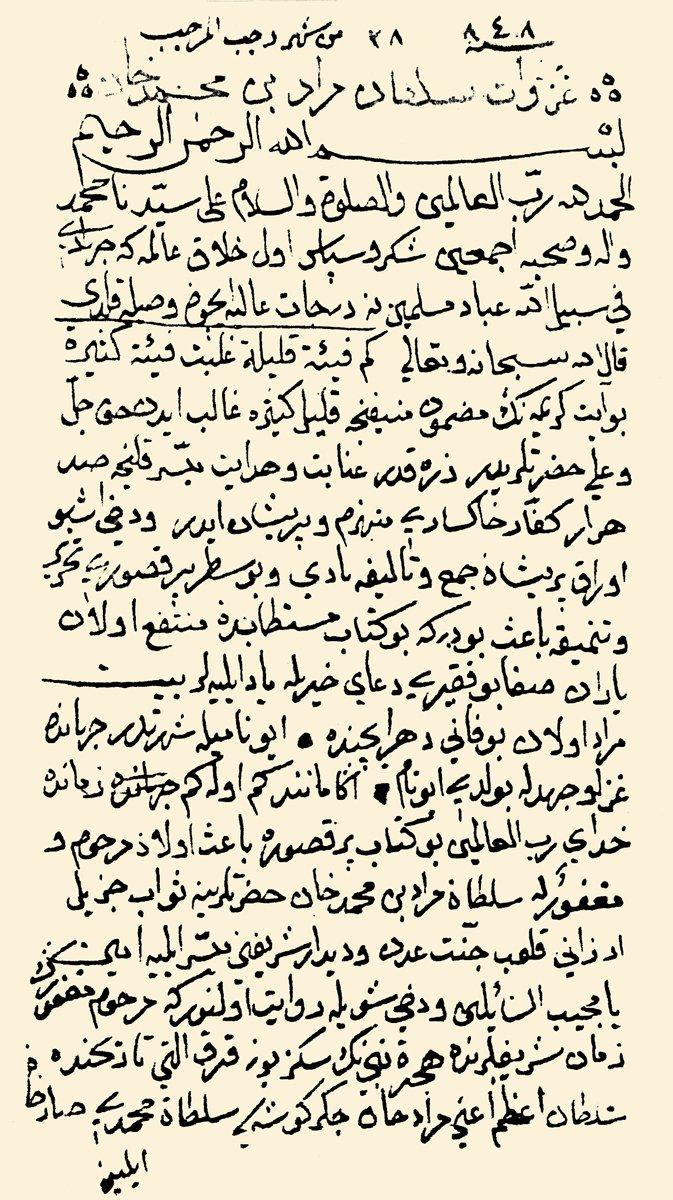 ٨٤٨ سنه ٢٨ من شهر رجب المرجب
غزوات سلطان مراد بن محمد خان
بسم الله الرحمن الرحيم
الحمد لله رب العالمين والصلوة والسلام على سيدنا محمد
واله وصحبه اجمعين شكر وسپاس اول خلاق عالمه كه
في سبيل الله عباد مسلمين نه درجات عاليه وصله قلدى
قال الله سبحانه وتعالي كم فيئة قليلة غلبت فيئة كثيرة
بو آيت كريمه نك مضمون منيفنجه قليل كثيره غالب ايدن حق جل
وعلي حضرتلريدر ذره قدر عنايت وهدايت ميسر قلنجه صد
هزار كفار خاكساري منهزم وپريشان ايدر ودخى اشبو
اوراق پريشان جمع وتأليفه بادي وبو سطر پر قصوري تحرير
وتنميقه باعث بودركه بو كتاب مستطابدن منتفع اولان
ياران صفا بو فقيري دعاي خيريله ياد ايليه لر بيت
مراد اولان بو فاني دهر ايچنده ايو ناميله شهرتدر جهانده
غزا وجهدله بولدي ايو نام اڭا مانند كم اوله كم زمانده
خداي رب العالمين بو كتاب پر قصوره باعث اولان مرحوم و
مغفور له سلطان مراد بن محمد خان حضرتلرينه ثواب جزيلي
ارزاني قلوب جنت عدن وديدار شريفني ميسر ايليه امين
يا مجيب السائلين ودخى شويله روايت اولنوركه مرحوم مغفورك
زمان شريفلرنده هجرة نبينك سكز يوز قرق التي تاريخنده
سلطان اعظم اعني مراد خان جكر كوشه سي سلطان محمدي
ايلين